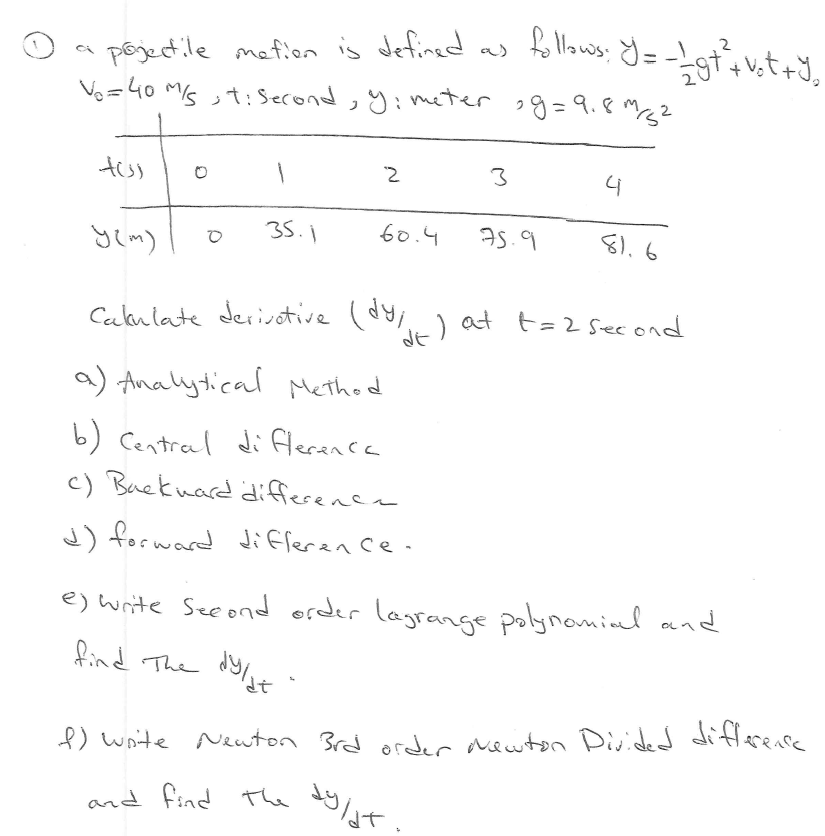 ① a pojectile motion is defined as follows: y = -1/2 gt² + V₀t + y₀
V₀ = 40 m/s , t: second , y: meter , g = 9.8 m/s²
t(s) 0 1 2 3 4
y(m) 0 35.1 60.4 75.9 81.6
Calculate derivative (dy/dt) at t = 2 second
a) Analytical Method
b) Central difference
c) Backward difference
d) forward difference.
e) write second order lagrange polynomial and
find The dy/dt.
f) write Newton 3rd order Newton Divided difference
and find the dy/dt.